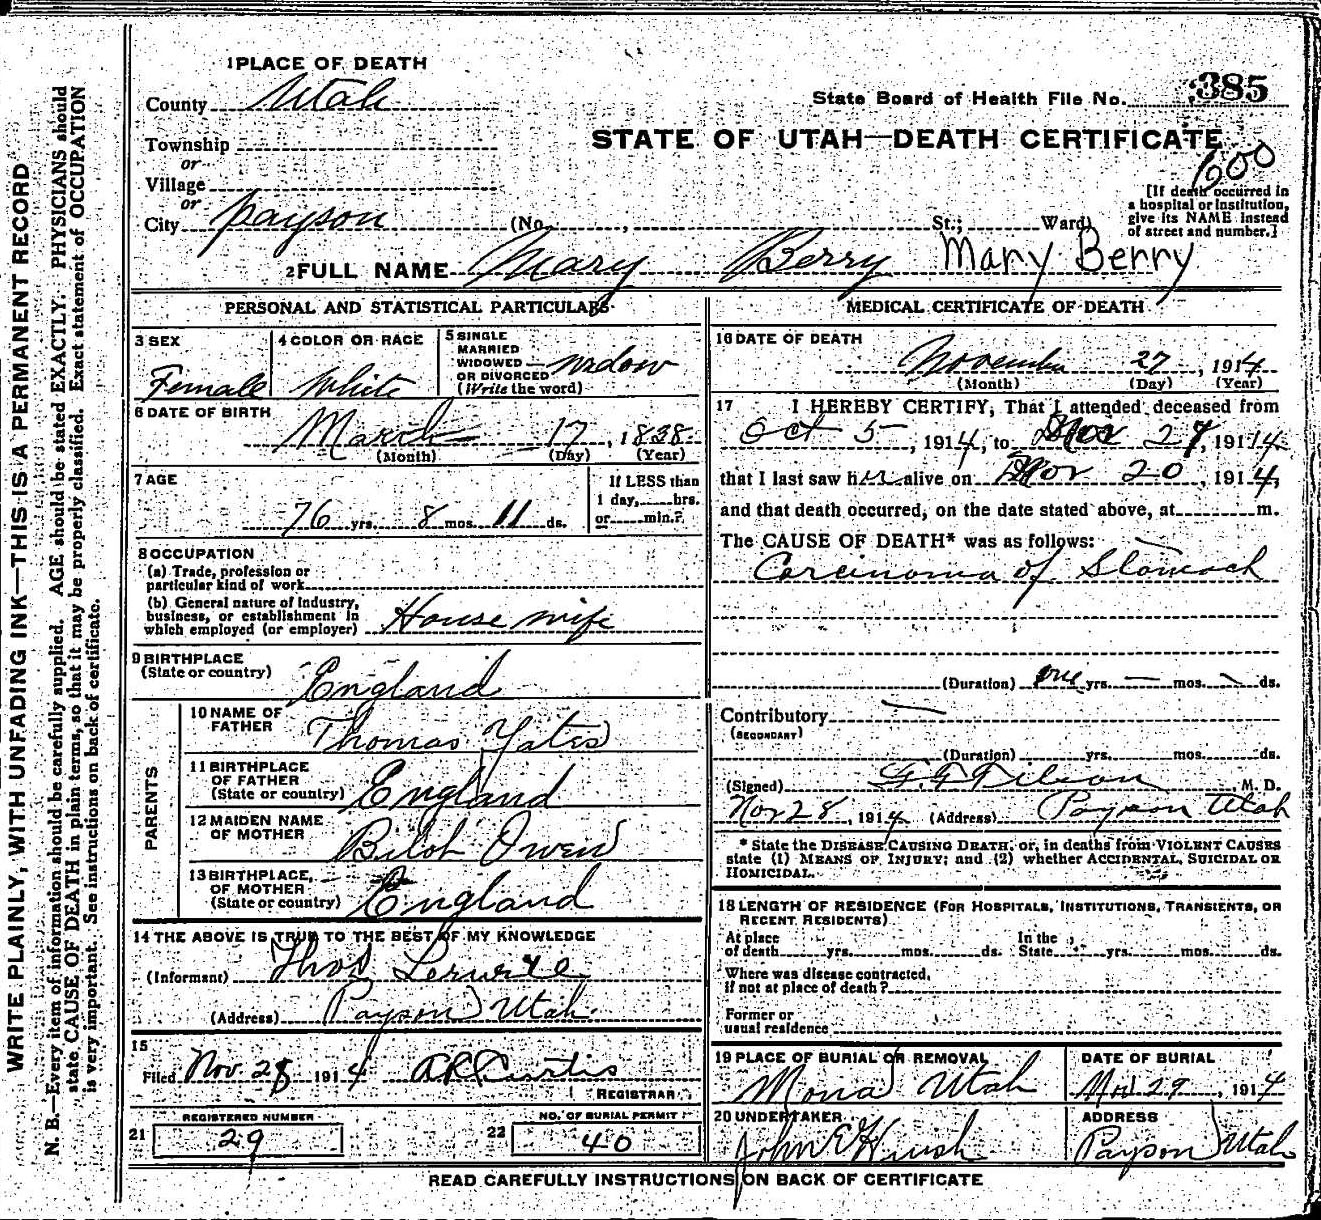 1 PLACE OF DEATH
County Utah
State Board of Health File No. 385
Township
STATE OF UTAH—DEATH CERTIFICATE
or
600
Village
or
City Payson (No. , St.; Ward)
[If death occurred in
a hospital or institution,
give its NAME instead
of street and number.]
2 FULL NAME Mary Berry Mary Berry
PERSONAL AND STATISTICAL PARTICULARS
3 SEX
Female
4 COLOR OR RACE
White
5 SINGLE
MARRIED
WIDOWED
OR DIVORCED
(Write the word)
widow
6 DATE OF BIRTH
March 17, 1838
(Month) (Day) (Year)
7 AGE
76 yrs. 8 mos. 11 ds.
If LESS than
1 day, hrs.
or min.?
8 OCCUPATION
(a) Trade, profession or
particular kind of work
(b) General nature of Industry,
business, or establishment in
which employed (or employer) House wife
9 BIRTHPLACE
(State or country) England
PARENTS
10 NAME OF
FATHER Thomas Yates
11 BIRTHPLACE
OF FATHER
(State or country) England
12 MAIDEN NAME
OF MOTHER Owen
13 BIRTHPLACE,
OF MOTHER
(State or country) England
14 THE ABOVE IS TRUE TO THE BEST OF MY KNOWLEDGE
(Informant) Thos
(Address) Payson Utah.
15
Filed Nov. 28 1914 Curtis
REGISTRAR
REGISTERED NUMBER
21 29
NO. OF BURIAL PERMIT
22 40
MEDICAL CERTIFICATE OF DEATH
16 DATE OF DEATH
November 27, 1914
(Month) (Day) (Year)
17 I HEREBY CERTIFY, That I attended deceased from
Oct 5, 1914, to Nov 27, 1914
that I last saw her alive on Nov 20, 1914,
and that death occurred, on the date stated above, at m.
The CAUSE OF DEATH* was as follows:
Carcinoma of Stomach
(Duration) one yrs. — mos. ds.
Contributory —
(SECONDARY)
(Duration) yrs. mos. ds.
(Signed) M. D.
Nov 28, 1914 (Address) Payson Utah
* State the DISEASE CAUSING DEATH, or, in deaths from VIOLENT CAUSES
state (1) MEANS OF INJURY; and (2) whether ACCIDENTAL, SUICIDAL OR
HOMICIDAL.
18 LENGTH OF RESIDENCE (FOR HOSPITALS, INSTITUTIONS, TRANSIENTS, OR
RECENT RESIDENTS)
At place
of death yrs. mos. ds.
In the
State yrs. mos. ds.
Where was disease contracted,
if not at place of death?
Former or
usual residence
19 PLACE OF BURIAL OR REMOVAL
Mona Utah
DATE OF BURIAL
Nov 29, 1914
20 UNDERTAKER
John E
ADDRESS
Payson Utah
READ CAREFULLY INSTRUCTIONS ON BACK OF CERTIFICATE
WRITE PLAINLY, WITH UNFADING INK—THIS IS A PERMANENT RECORD
N. B.—Every item of information should be carefully supplied. AGE should be stated EXACTLY. PHYSICIANS should
state CAUSE OF DEATH in plain terms, so that it may be properly classified. Exact statement of OCCUPATION
is very important. See instructions on back of certificate.